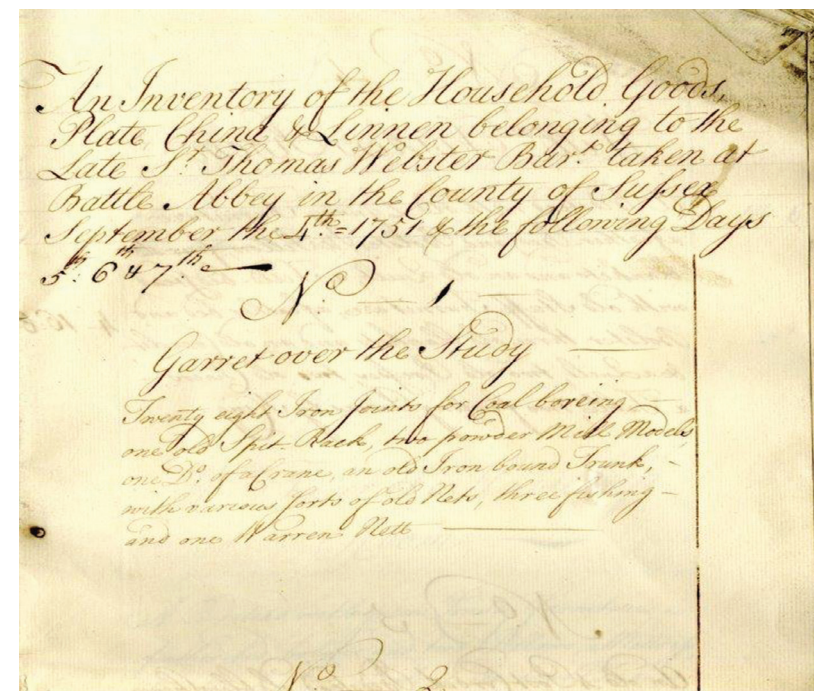 An Inventory of the Household Goods,
Plate, China & Linnen belonging to the
Late Sr. Thomas Webster Bart. taken at
Battle Abbey in the County of Sussex
September the 4th.=1751 & the following Days
5th. 6th & 7th.
No 1
Garret over the Study
Twenty eight Iron Joints for Coal boreing
one old Spit Rack, two powder Mill Models,
one Do. of a Crane, an old Iron bound Trunk,
with various sorts of old Nets, three fishing
and one Warren Nett
No 2